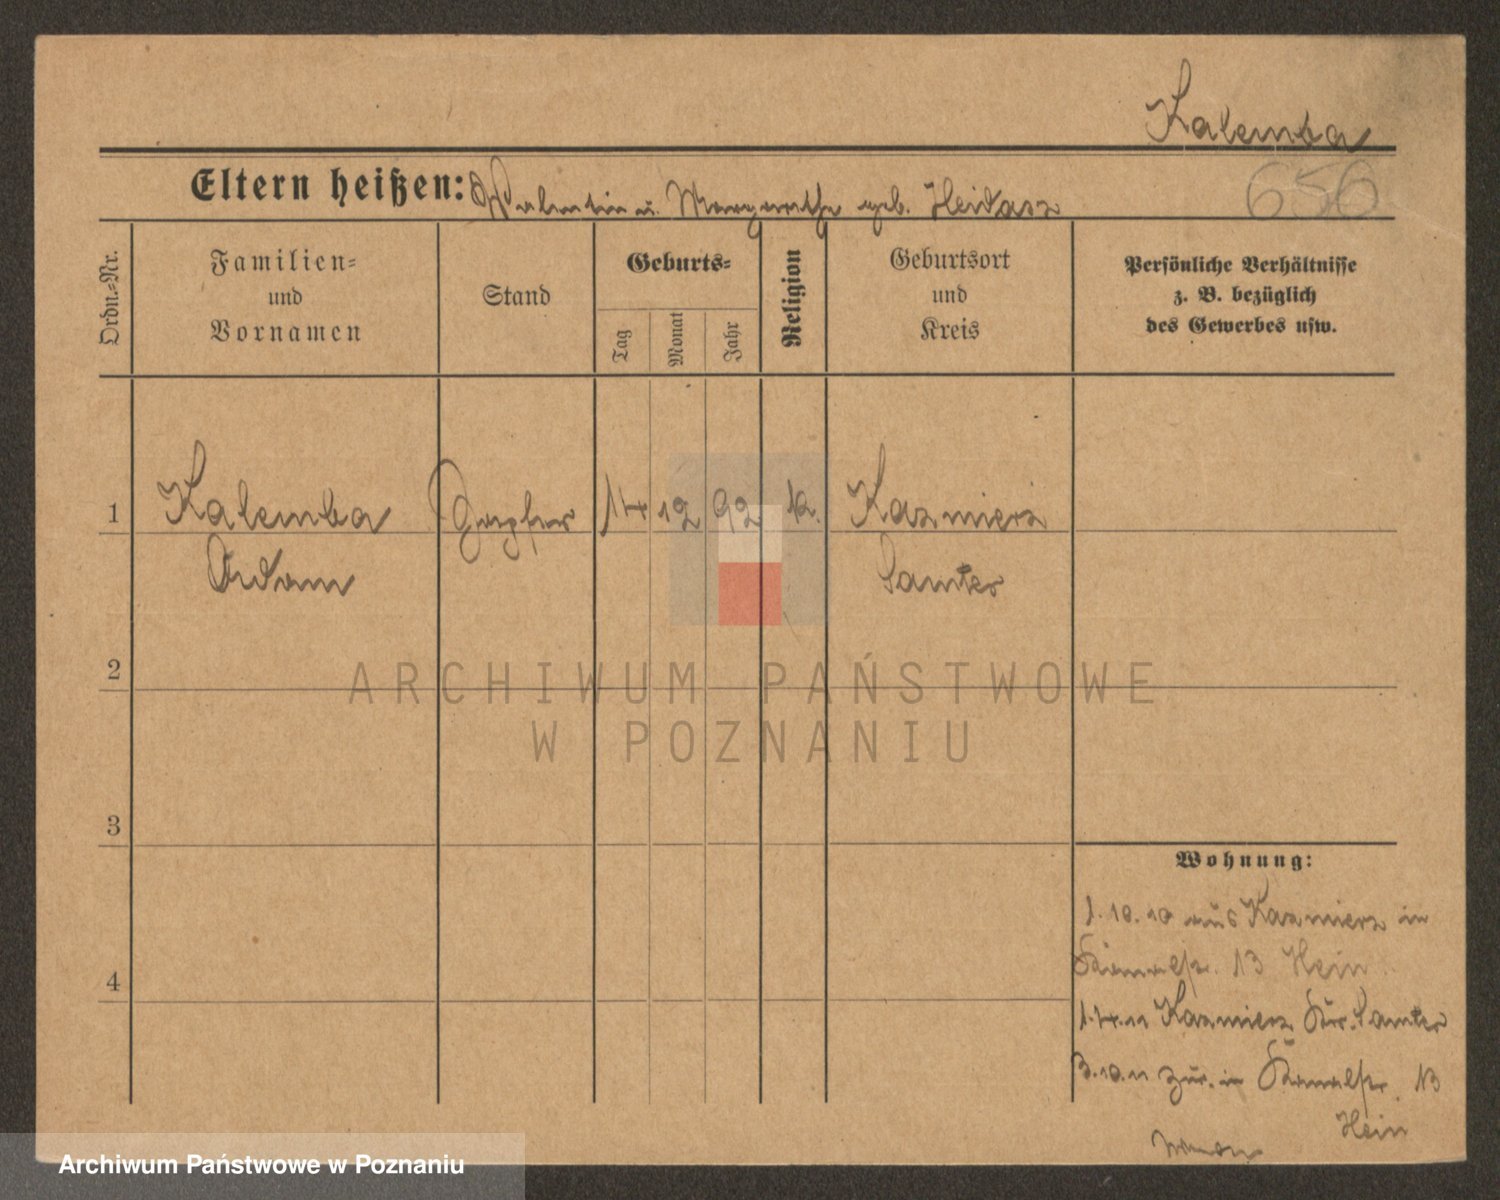 Kalemba
656
Eltern heißen: Valentin u. Margarethe geb. Heidasz
Ordn.=Nr.
Familien=
und
Vornamen
Stand
Geburts=
Tag
Monat
Jahr
Religion
Geburtsort
und
Kreis
Persönliche Verhältnisse
z. B. bezüglich
des Gewerbes usw.
1
Kalemba
Adam
14 12 92 k.
Kazmierz
Samter
2
3
4
ARCHIWUM PAŃSTWOWE
W POZNANIU
Wohnung:
1.10.10 aus Kazmierz in
Kanalstr. 13 Hein
1.4.11 Kazmierz Kr. Samter
3.10.11 zur. in Kanalstr. 13
Hein
Archiwum Państwowe w Poznaniu